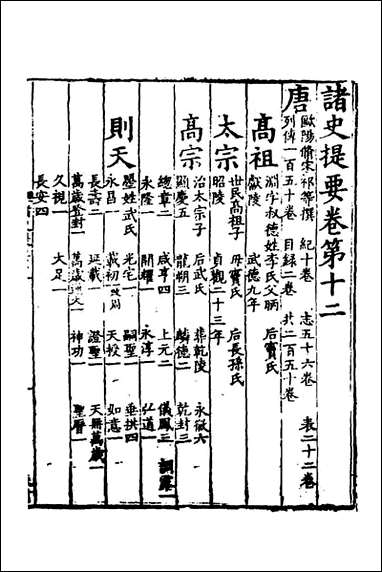 諸史提要卷第十二
唐 歐陽脩宋祁等撰 紀十卷 志五十六卷 表二十二卷
列傳一百五十卷 目録二卷 共二百五十卷
高祖 淵字叔德姓李氏父昞 后竇氏
獻陵 武德九年
太宗 世民髙祖子 母竇氏 后長孫氏
昭陵 貞觀二十三年
髙宗 治太宗子 后武氏 葬乾陵 永徽六
顯慶五 龍朔三 麟德二 乾封三
總章二 咸亨四 上元二 儀鳳三 調露一
永隆一 開耀一 永淳一 弘道一
則天 曌姓武氏 光宅一 嗣聖一 垂拱四
永昌一 載初一 天授一 如意一
長壽二 延載一 證聖一 天冊萬歲一
萬歲登封一 萬歲通天一 神功一 聖曆一
久視一 大足一
長安四